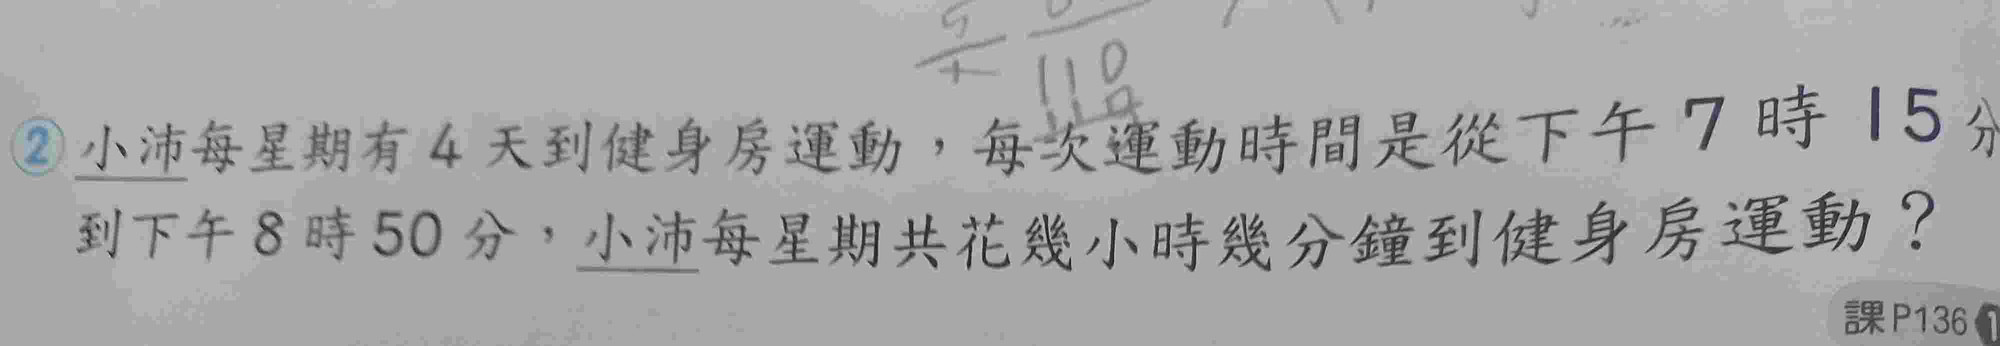 110
② 小沛每星期有 4 天到健身房運動，每次運動時間是從下午 7 時 15 分
到下午 8 時 50 分，小沛每星期共花幾小時幾分鐘到健身房運動？
課P136 1